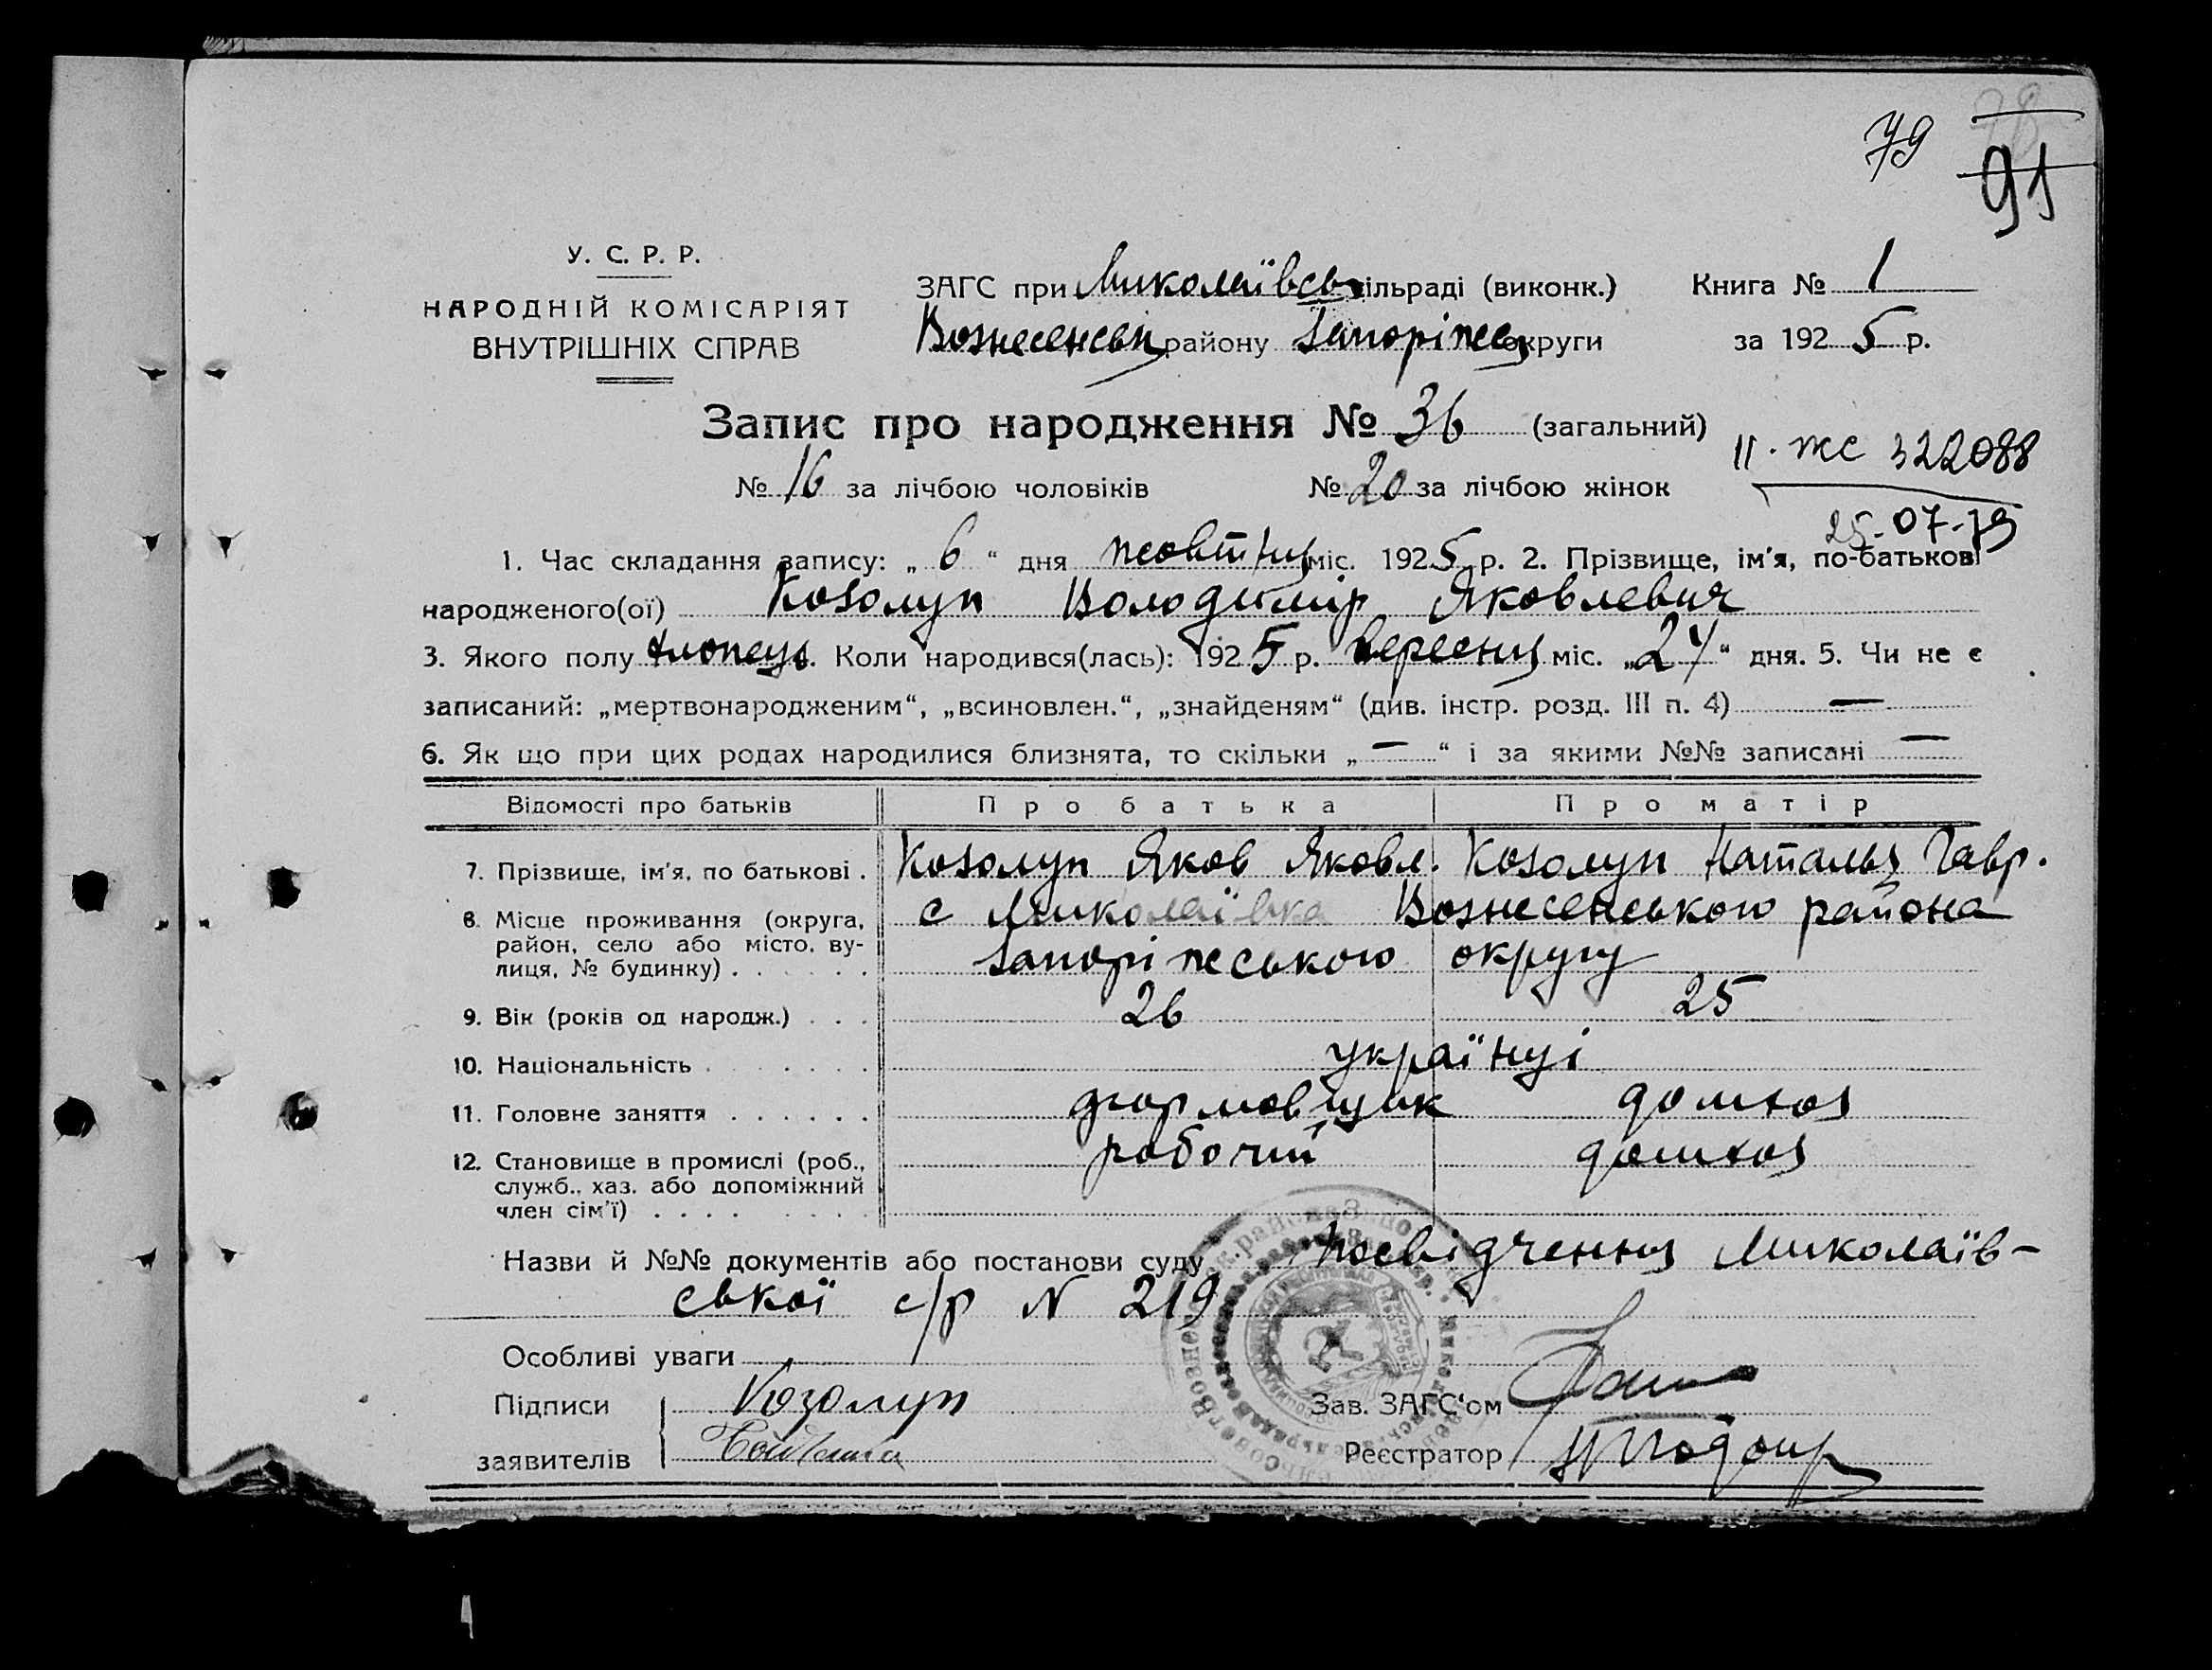 79
91
У. С. Р. Р.
НАРОДНІЙ КОМІСАРІЯТ
ВНУТРІШНІХ СПРАВ
ЗАГС при Миколаївськ сільраді (виконк.) Книга № 1
Вознесенськ району Запоріжськ округи за 1925 р.
Запис про народження № 36 (загальний)
II-ЖС 322088
№ 16 за лічбою чоловіків № 20 за лічбою жінок
25-07-79
1. Час складання запису: „6“ дня жовтня міс. 1925 р. 2. Прізвище, ім'я, по-батькові
народженого(ої) Козолуп Володимір Яковлевич
3. Якого полу хлопець. Коли народився(лась): 1925 р. вересня міс. „24“ дня. 5. Чи не є
записаний: „мертвонародженим“, „всиновлен.“, „знайденям“ (див. інстр. розд. III п. 4) —
6. Як що при цих родах народилися близнята, то скільки „—“ і за якими №№ записані —
Відомості про батьків Про батька Про матір
7. Прізвище, ім'я, по батькові . Козолуп Яков Яковл. Козолуп Наталья Гавр.
8. Місце проживання (округа, с Миколаївка Вознесенського района
район, село або місто, ву-
лиця, № будинку) . . . . . . Запоріжського округу
9. Вік (років од народж.) . . . 26 25
10. Національність . . . . . . . українці
11. Головне заняття . . . . . . формовщик домхоз
12. Становище в промислі (роб., робочий домхоз
служб., хаз. або допоміжний
член сім'ї) . . . . . . . .
Назви й №№ документів або постанови суду Посвідчення Миколаїв-
ської с/р N 219
Особливі уваги
Підписи Козолуп Зав. ЗАГС'ом
заявителів Реєстратор